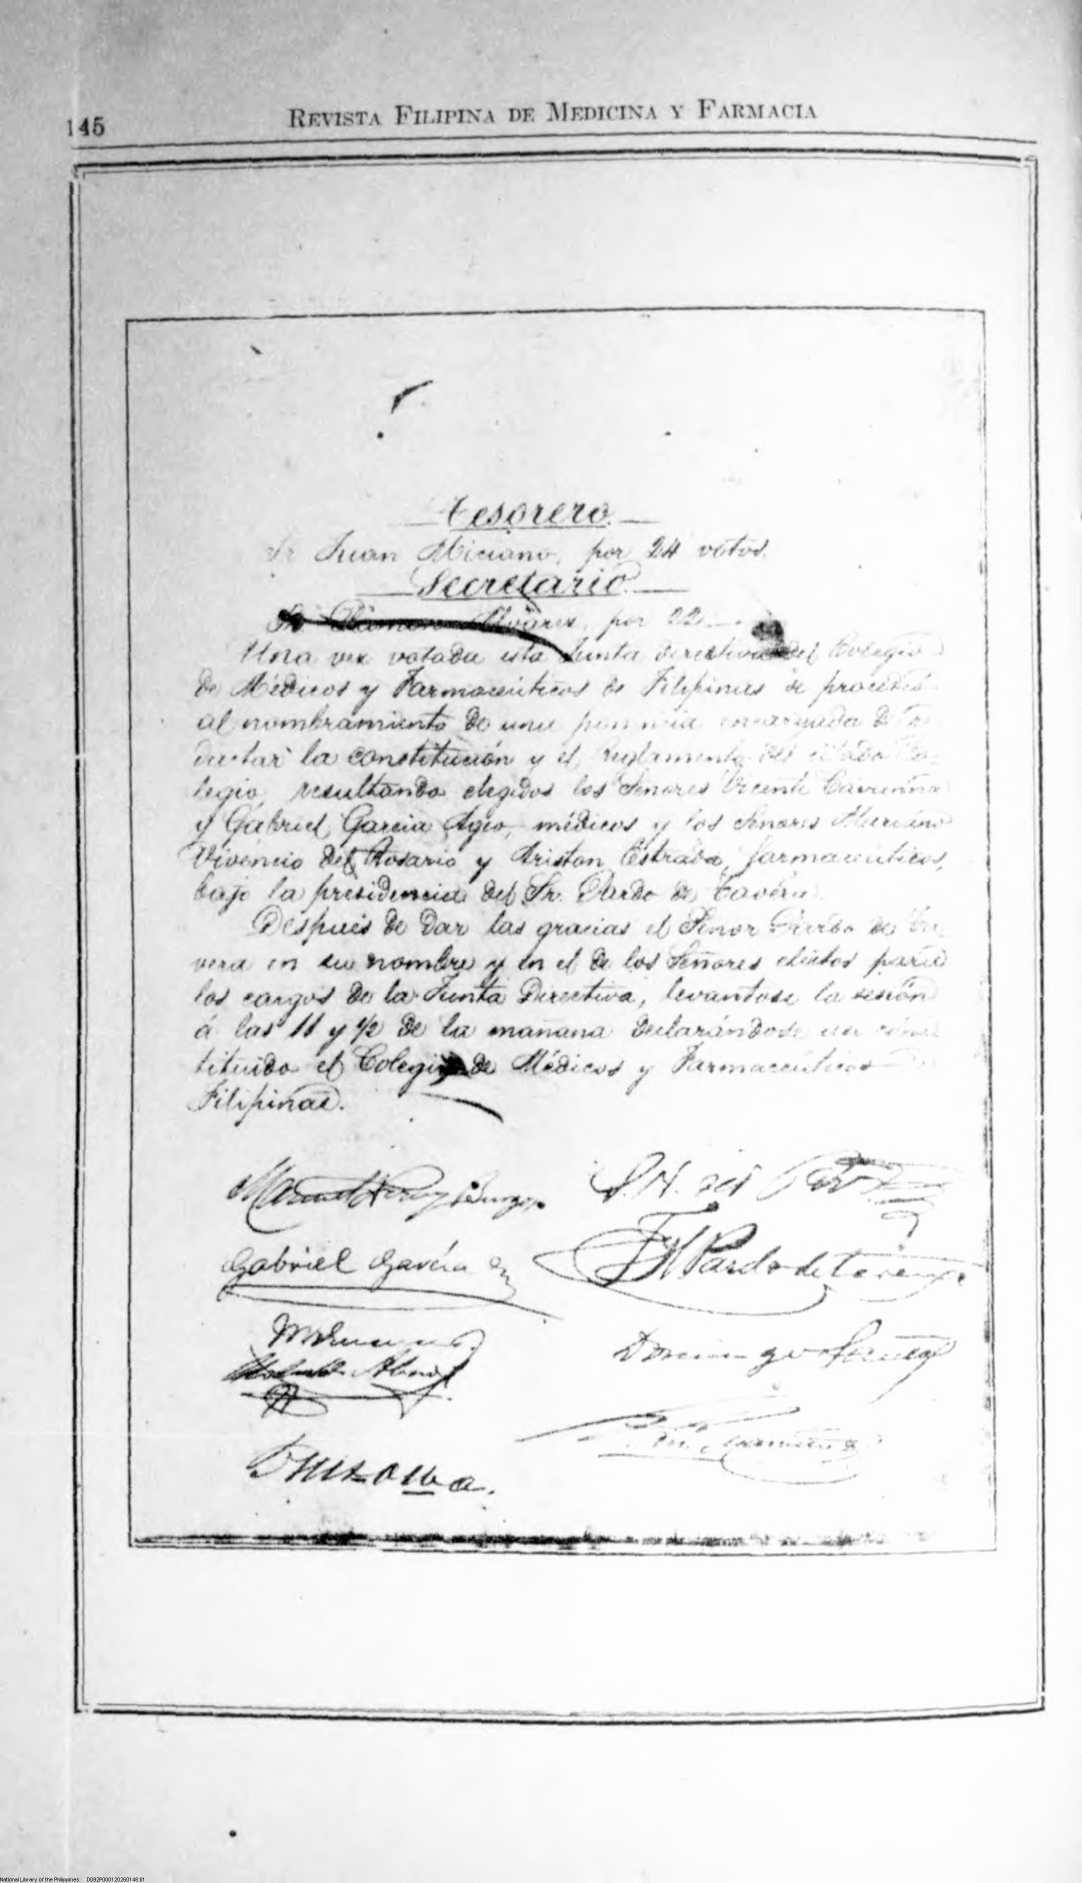 145
REVISTA FILIPINA DE MEDICINA Y FARMACIA
Tesorero.
Sr Juan Miciano, por 24 votos.
Secretario.
Sr Ramon Alvarez, por 22
Una vez votada esta Junta directiva del Colegio
de Médicos y Farmacéuticos de Filipinas se procedió
al nombramiento de una ponencia encargada de re-
dactar la constitución y el reglamento del citado Co-
legio, resultando elegidos los Señores Vicente Cavanna
y Gabriel Garcia Ageo, médicos y los Señores Mariano
Vivencio del Rosario y Ariston Estrada, farmacéuticos,
bajo la presidencia del Sr. Pardo de Tavera.
Despues de dar las gracias el Señor Pardo de Ta-
vera en su nombre y en el de los Señores electos para
los cargos de la Junta Directiva, levantose la sesión
á las 11 y 1/2 de la mañana declarándose
tituido el Colegio de Médicos y Farmacéuticos de
Filipinas.
Manuel Xerez Burgos
Gabriel García
T H Pardo de Tavera